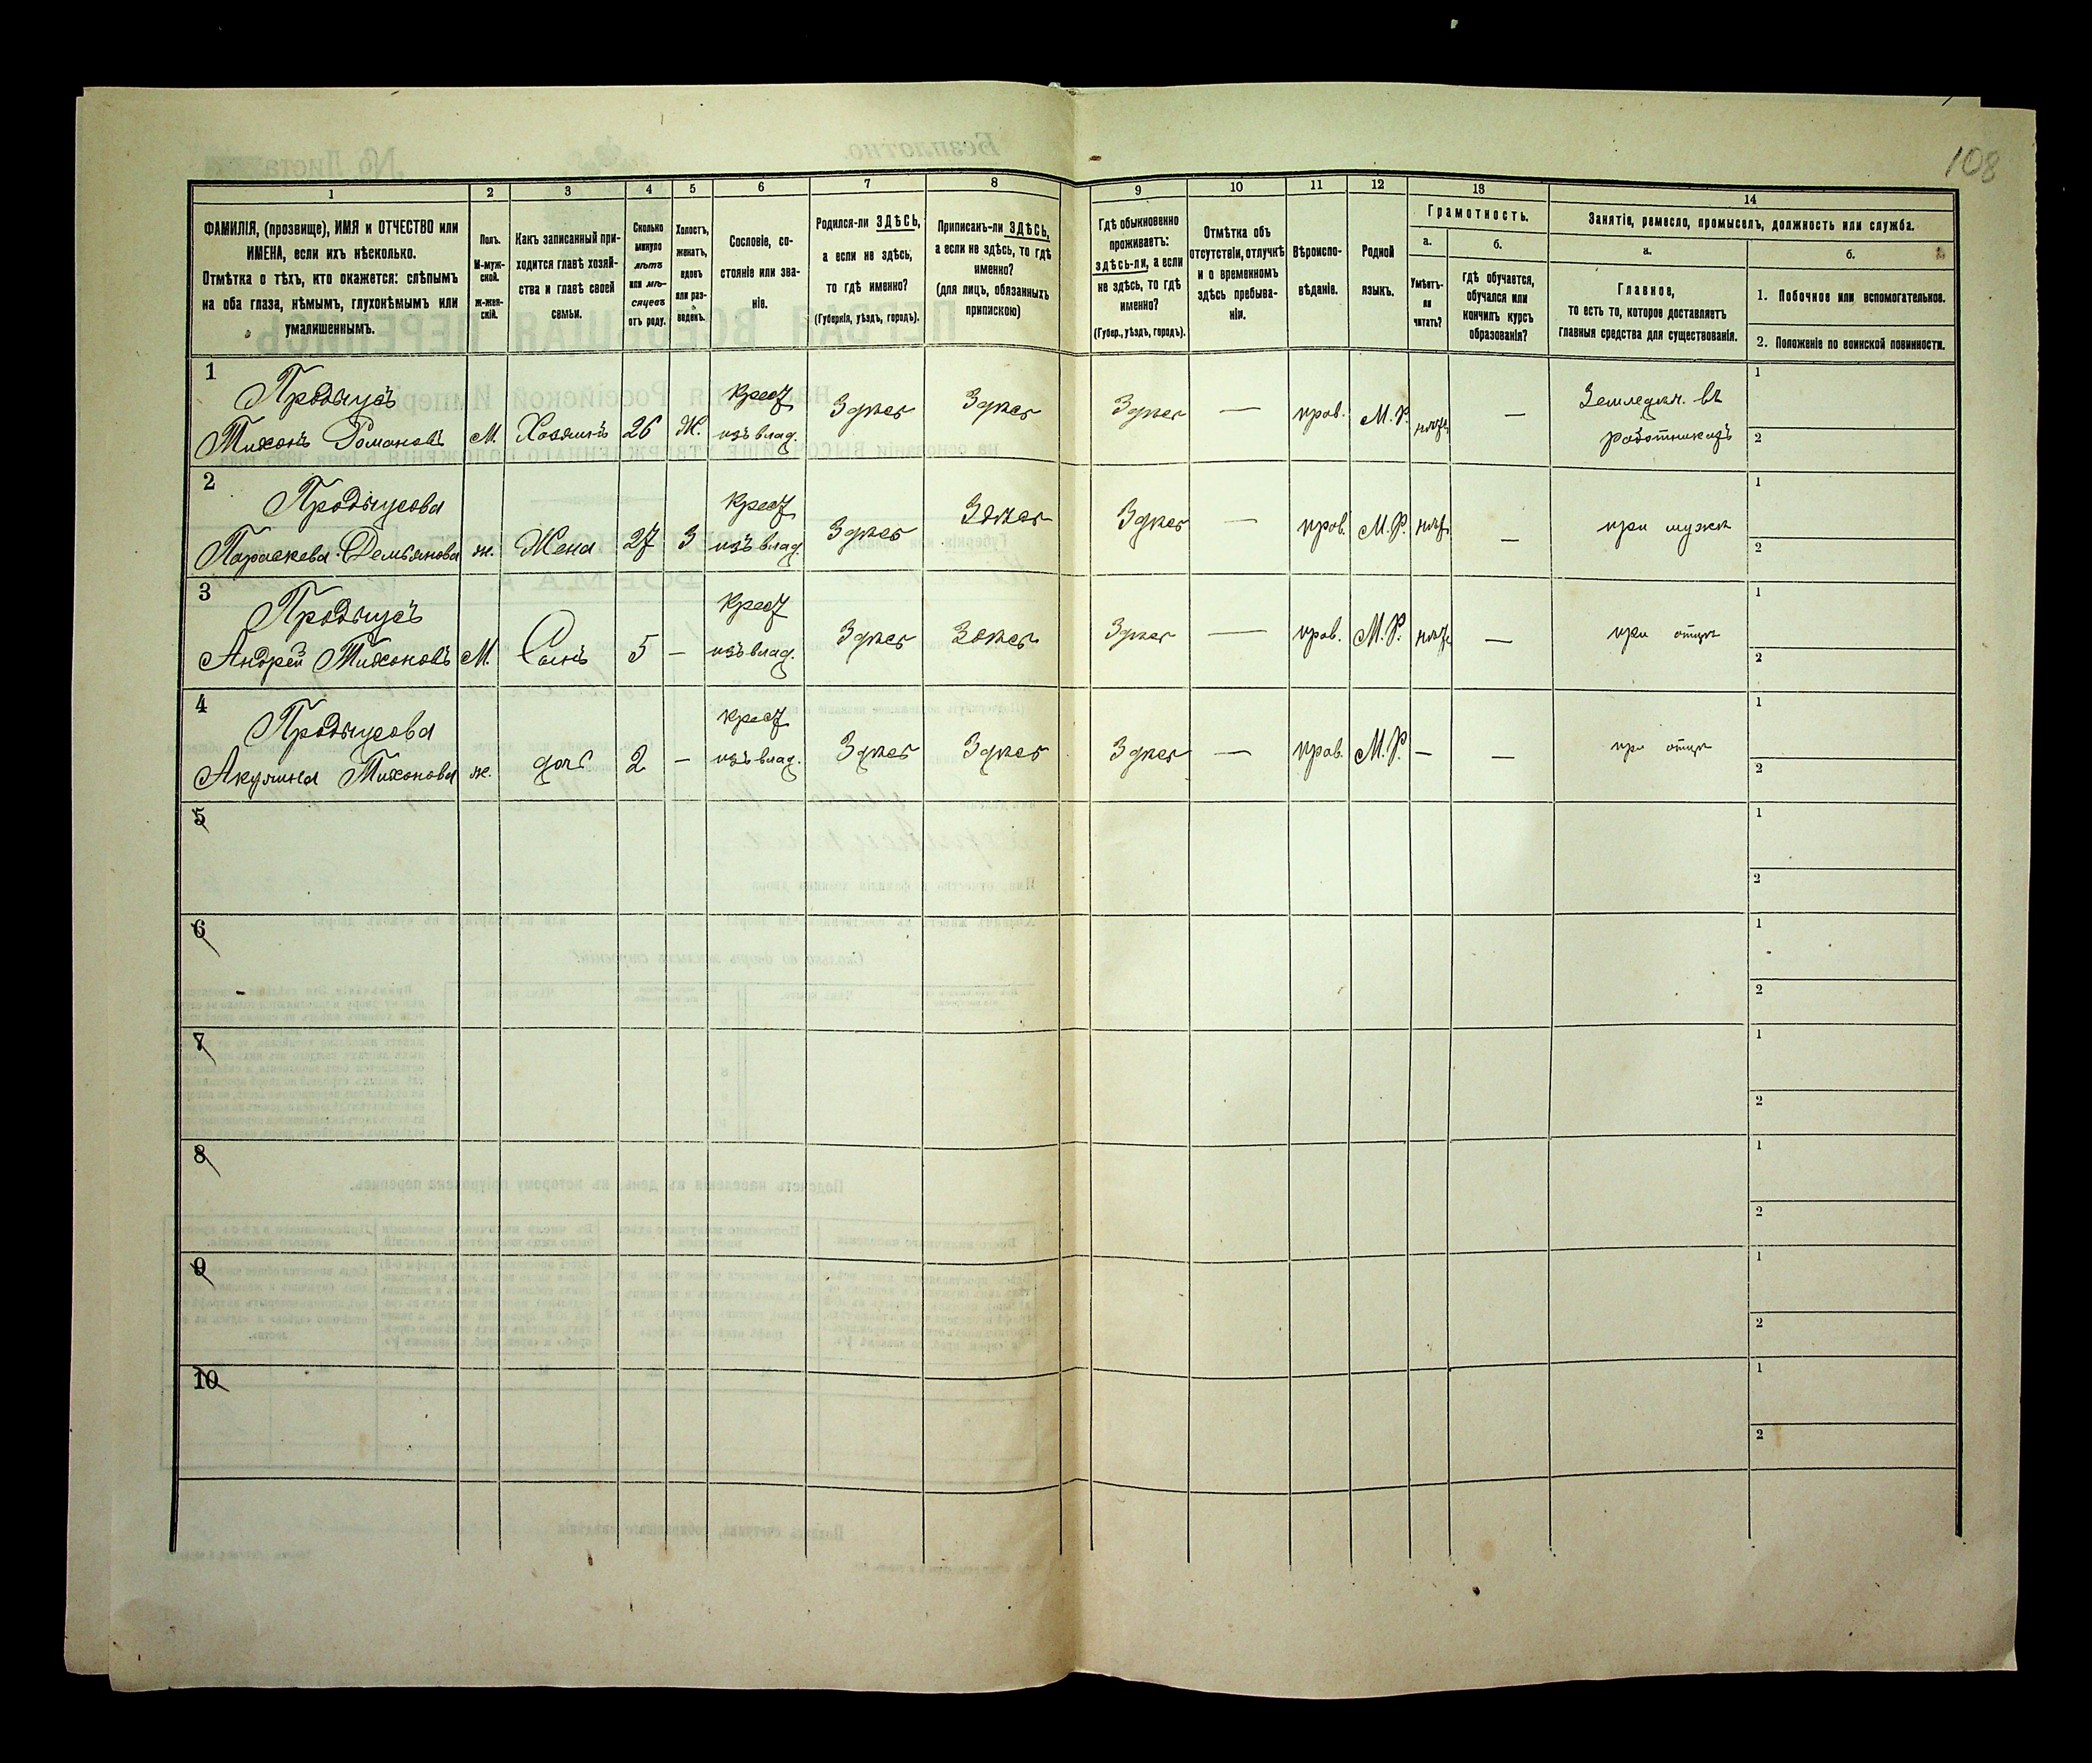 108
1 2 3 4 5 6 7 8 9 10 11 12 13 14
ФАМИЛІЯ, (прозвище), ИМЯ и ОТЧЕСТВО или
ИМЕНА, если ихъ нѣсколько.
Отмѣтка о тѣхъ, кто окажется: слѣпымъ
на оба глаза, нѣмымъ, глухонѣмымъ или
умалишеннымъ.
Полъ.
М-муж-
ской.
ж-жен-
скій.
Какъ записанный при-
ходится главѣ хозяй-
ства и главѣ своей
семьи.
Сколько
минуло
лѣтъ
или мѣ-
сяцевъ
отъ роду.
Холостъ,
женатъ,
вдовъ
или раз-
веденъ.
Сословіе, со-
стояніе или зва-
ніе.
Родился-ли ЗДѢСЬ,
а если не здѣсь,
то гдѣ именно?
(Губернія, уѣздъ, городъ).
Приписанъ-ли ЗДѢСЬ,
а если не здѣсь, то гдѣ
именно?
(для лицъ, обязанныхъ
припискою)
Гдѣ обыкновенно
проживаетъ:
здѣсь-ли, а если
не здѣсь, то гдѣ
именно?
(Губер., уѣздъ, городъ).
Отмѣтка объ
отсутствіи, отлучкѣ
и о временномъ
здѣсь пребыва-
ніи.
Вѣроиспо-
вѣданіе.
Родной
языкъ.
Грамотность.
а.
Умѣетъ-
ли
читать?
б.
гдѣ обучается,
обучался или
кончилъ курсъ
образованія?
Занятіе, ремесло, промыселъ, должность или служба.
а.
Главное,
то есть то, которое доставляетъ
главныя средства для существованія.
б.
1. Побочное или вспомогательное.
2. Положеніе по воинской повинности.
1
Продіусъ крест Земледѣл. въ 1
Тихонъ Романовъ М. Хозяинъ 26 Ж. изъ влад. Здѣсь Здѣсь Здѣсь — прав. М. Р. нѣтъ — работникахъ 2
2
Продіусова крест 1
Параскева Демьянова ж. Жена 27 З изъ влад. Здѣсь Здѣсь Здѣсь — прав. М. Р. нѣтъ — при мужѣ 2
3
Продіусъ крест 1
Андрей Тихоновъ М. Сынъ 5 — изъ влад. Здѣсь Здѣсь Здѣсь — прав. М. Р. нѣтъ — при отцѣ 2
4
Продіусова крест 1
Акулина Тихонова ж. доч 2 — изъ влад. Здѣсь Здѣсь Здѣсь — прав. М. Р. — — при отцѣ 2
5 1
2
6 1
2
7 1
2
8 1
2
9 1
2
10 1
2